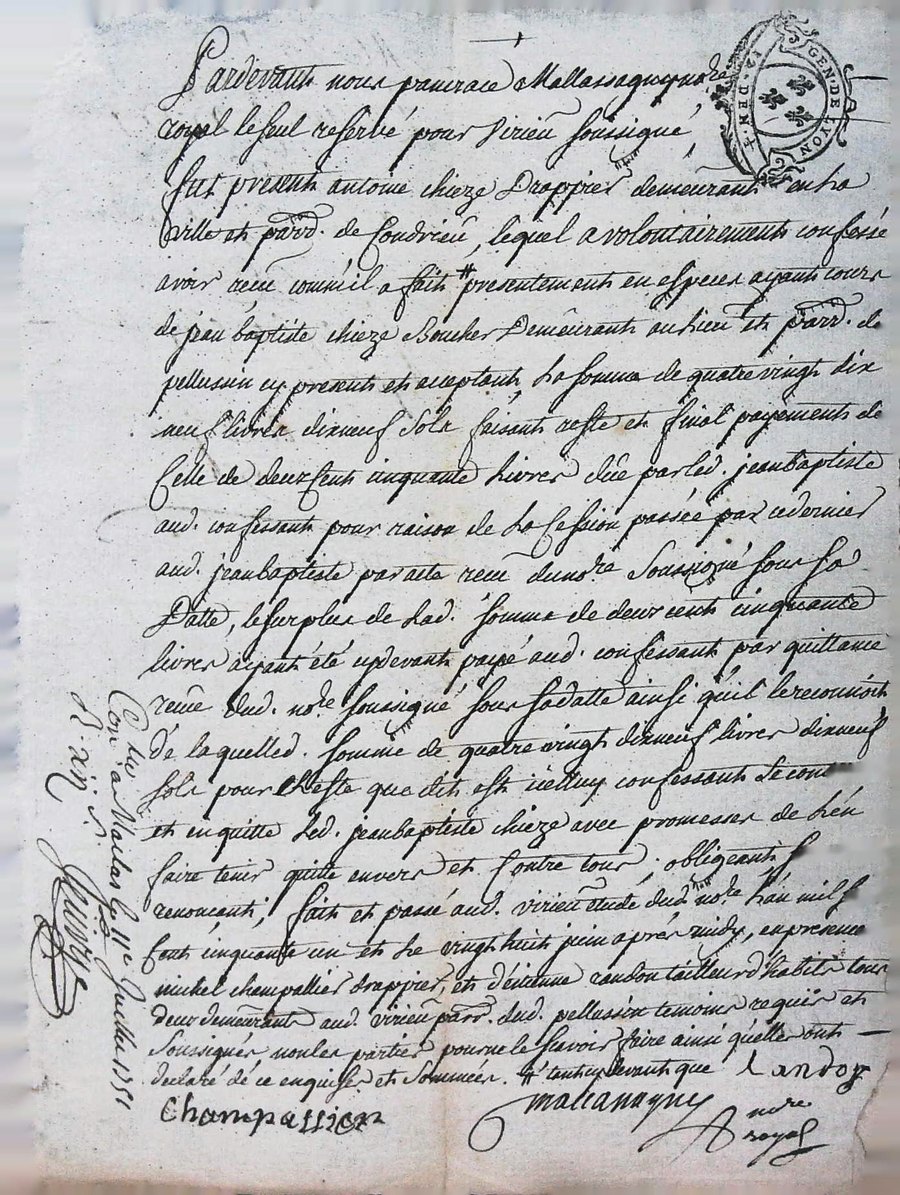 GEN · DE · LYON
12 · DEN · 4
Pardevant nous pancrace Mallassagny no.re
royal le seul reservé pour virieu soussigné,
fut present antoine chieze Drappier demeurant en la
ville et parr. de Condrieu, lequel a volontairement confessé
avoir receu comm'il a fait # presentement en especes ayant cours
de jean baptiste chieze Boucher Demeurant au lieu et parr. de
pellussin cy present et acceptant, La somme de quatre vingt dix
neuf livres dixneuf sols faisant reste et final payement de
Celle de deux Cent cinquante Livres dûe par led. jean baptiste
aud. confessant pour raison de La Cession passée par ce dernier
aud. jean baptiste par acte receu dud. no.re Soussigné sous sa
Datte, le surplus de Lad. somme de deux cent cinquante
livres ayant été cy devant payé aud. confessant par quittance
receue dud. no.re soussigné sous sa datte ainsi qu'il le reconnoit
De laquelle d. somme de quatre vingt dixneuf livres dixneuf
sols pour Reste que dit est icelluy confessant se cont
et en quitte Led. jean baptiste chieze avec promesses de L'en
faire tenir quitte envers et Contre tous, obligeant
renonçant, fait et passé aud. virieu étude dud. no.re L'an mil s
Cent cinquante un et Le vingt huit juin après midy, en presence
michel champallier drappier, et d'étienne randon tailleur d'habits tous
deux demeurants aud. virieu parr. dud. pellussin temoins requis et
Soussignés non les parties pour ne le sçavoir faire ainsi qu'elles ont
declaré de ce enquises et Sommées. # tant cy devant que Randon
Champallier
mallassagny no.re
royal
Con.lé a Maclas le 11e Juillet 1751
R. xii s.